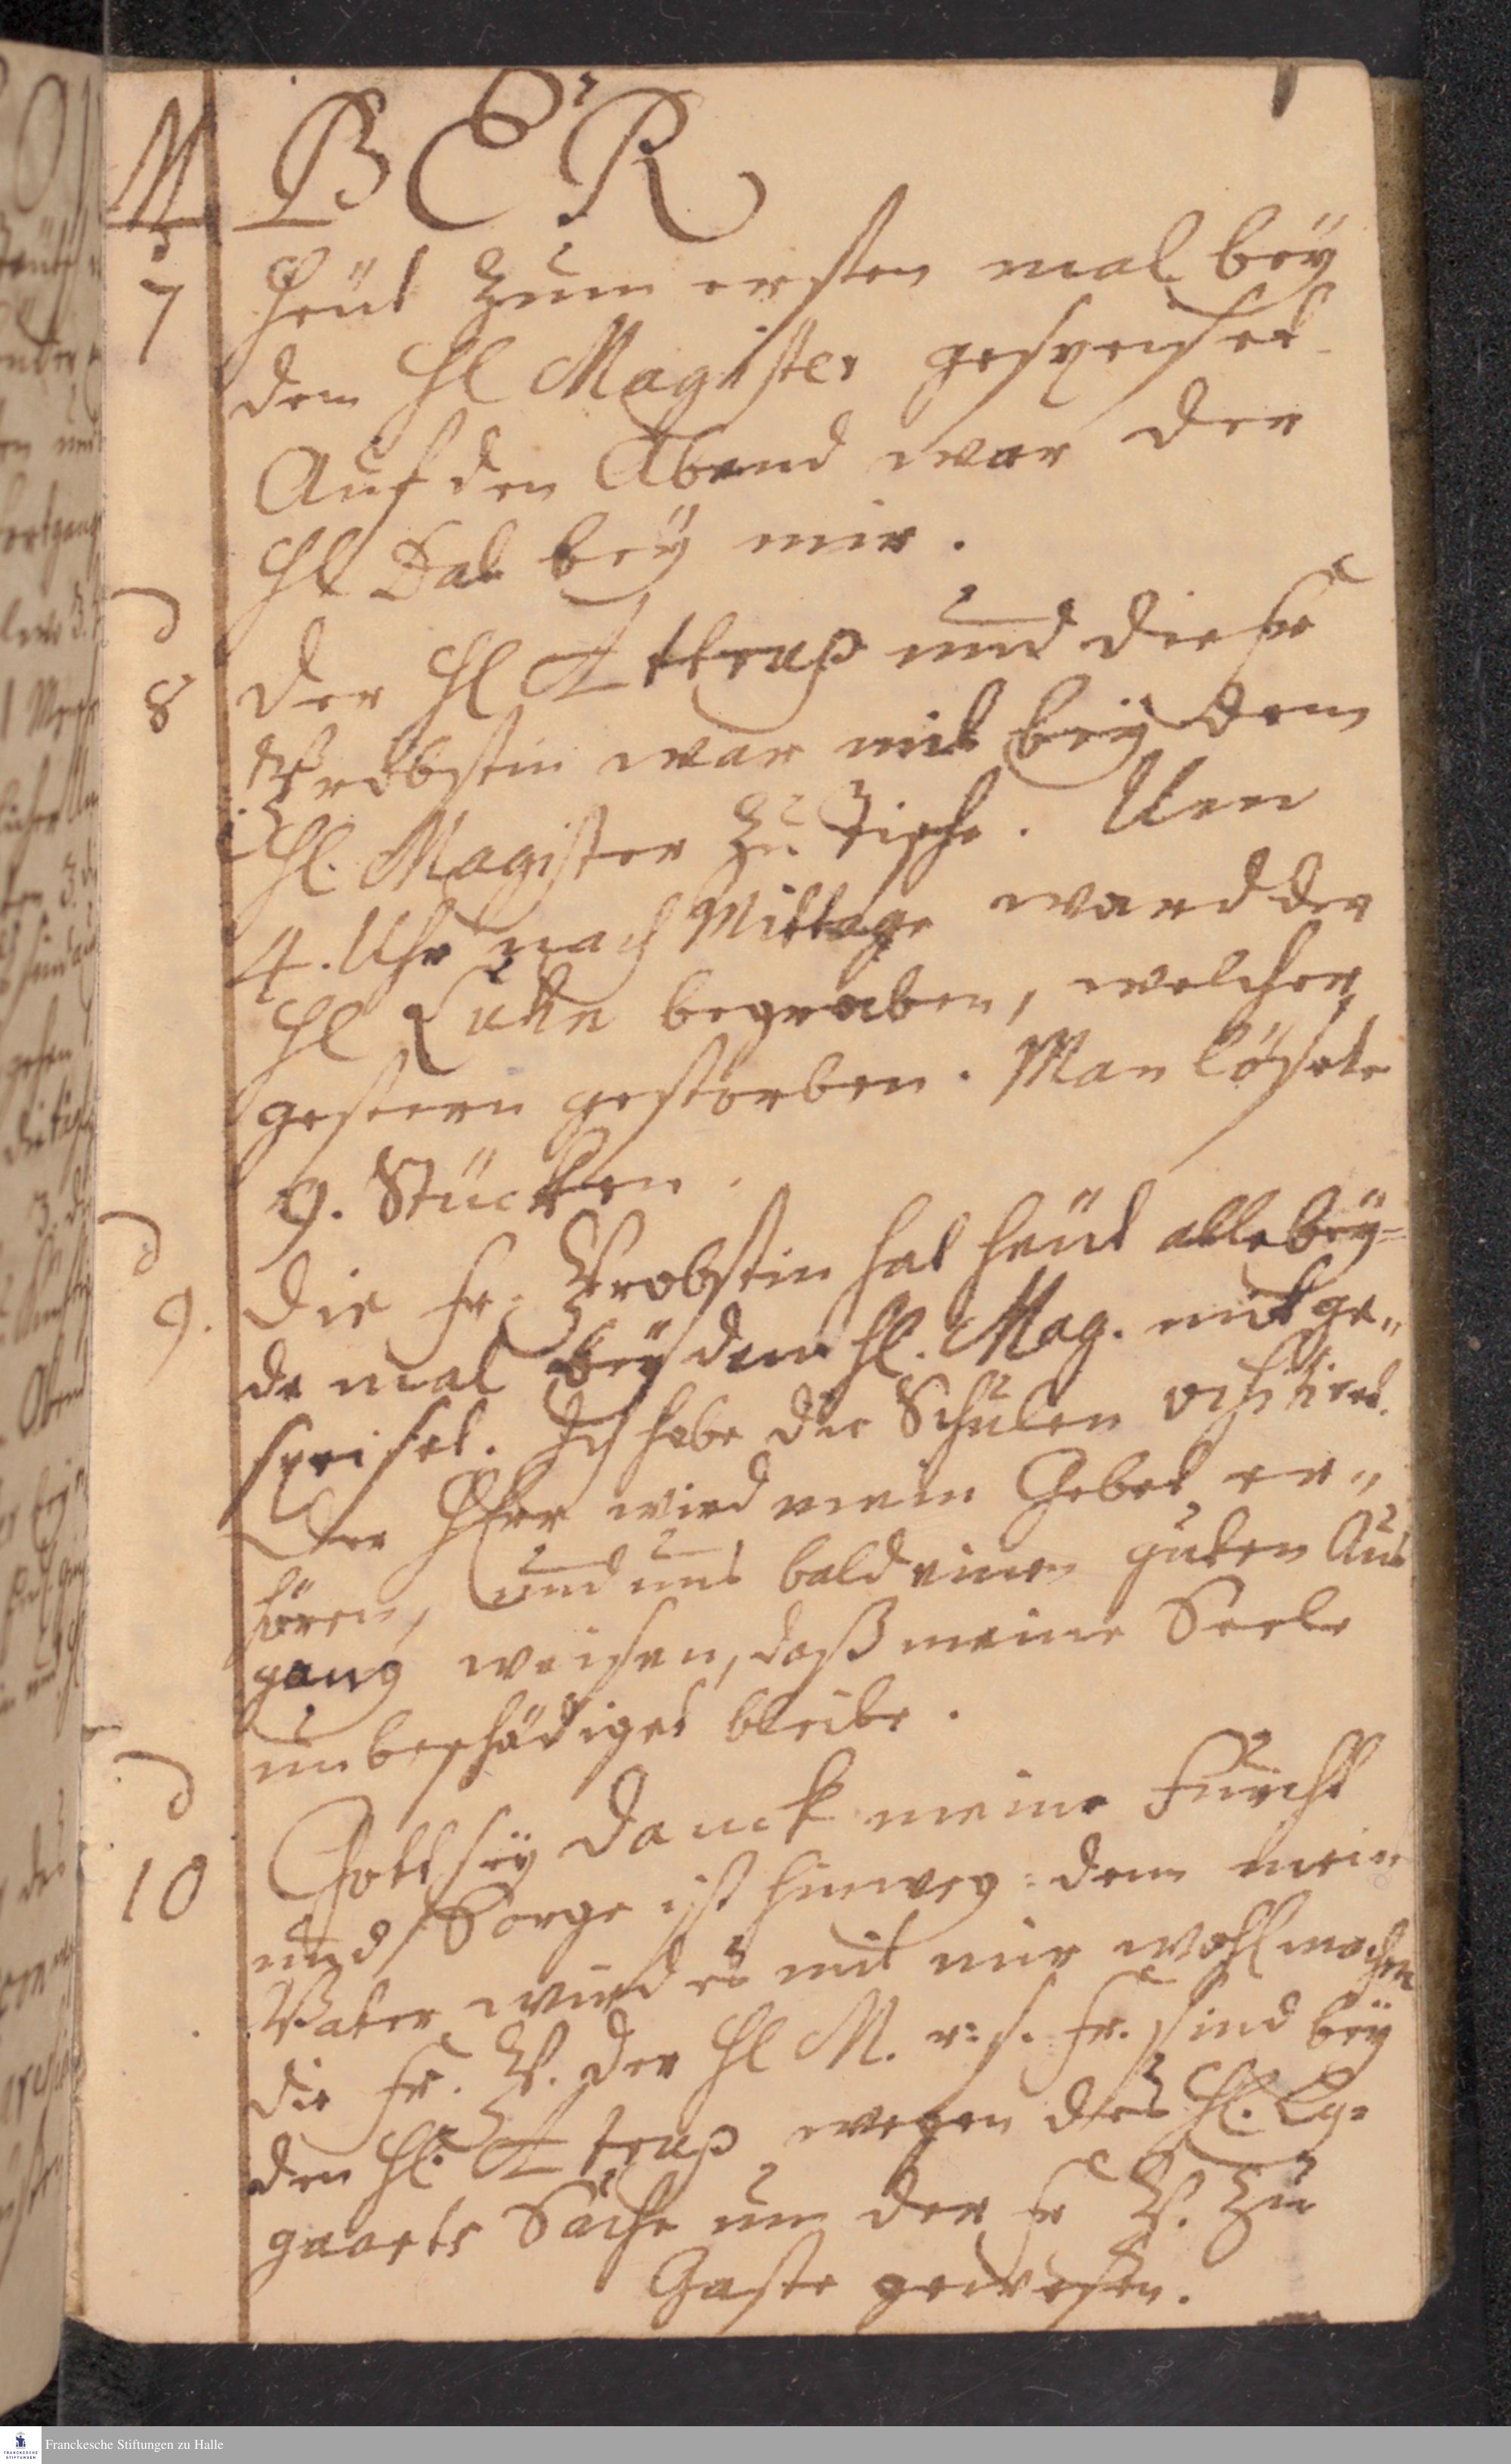 M BER
7 heüt zum ersten mal beÿ
dem Hl Magister gespeiset
Auf den Abend war der
Hl Dal beÿ mir.
8 Der Hl Attrup und die Fr
Pröbstin war mit beÿ dem
Hl. Magister zu Tische. Um
4. Uhr nach Mittage ward der
Hl begraben, welcher
gestern gestorben. Man lösete
9. Stücken.
9. Die Fr. Probstin hat heüt alle beÿ=
de mal beÿ dem Hl. Mag. mit ge„
speiset. Ich habe die Schulen visitiret.
Der HErr wird mein Gebet er„
hören, und uns bald einen guten Aus
gang weisen, daß meine Seele
unbeschädiget bleibe.
10 Gott seÿ Danck meine Furcht
und Sorge ist hinweg: denn mein
Vater wird es mit mir wohl machen
die Fr. P. der Hl M. u. s. Fr. sind beÿ
den Hl. Atrup wegen des Hl. Ly=
gaards Sache um der Fr P. zu
Gaste gewesen.
Franckesche Stiftungen zu Halle